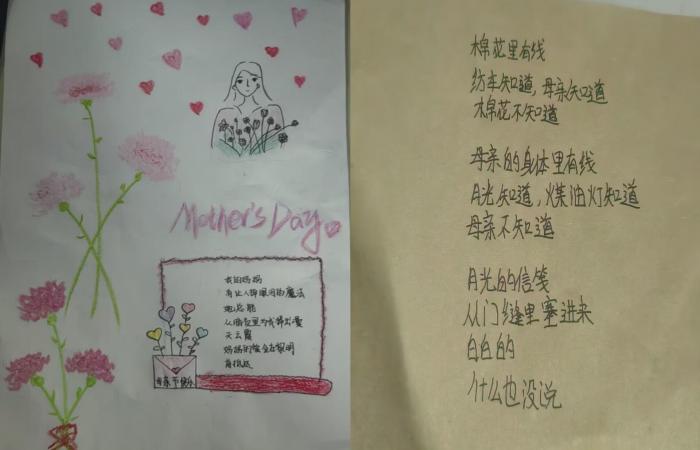 Mother's Day
我的妈妈
有让人睁眼闭的魔法
她总能
从面包里
天云霞
妈妈的
母亲节快乐
棉花里有线
纺车知道,母亲知道
棉花不知道
母亲的身体里有线
月光知道,煤油灯知道
母亲不知道
月光的信笺
从门缝里塞进来
白白的
什么也没说